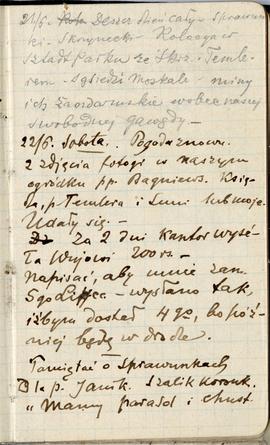 21/6. Deszcz dzień cały - Sprawun-
ki - Skrzynecki - Kolacya w
Szladt Parku ze Skrz. i Temle-
rem - Sąsiedzi Moskale - miny
ich żandarmskie wobec naszej
swobodnej gawędy. -
22/6. sobota. Pogoda znowu.
2 zdjęcia fotogr w naszym
ogródku pp. Bagniews. Ksie-
da, p. Temlera i
Udały się. -
Za 2 dni kantor wysé-
ła Wujowi 200 rs. -
napisać, aby mnie zan.
- wysłano tak,
iżbym dostał 4 go, bo póź-
niej będę w drodze.
Pamiętać o sprawunkach
Dla p. Janik. Szalik koronk.
" Mamy parasol i chust.